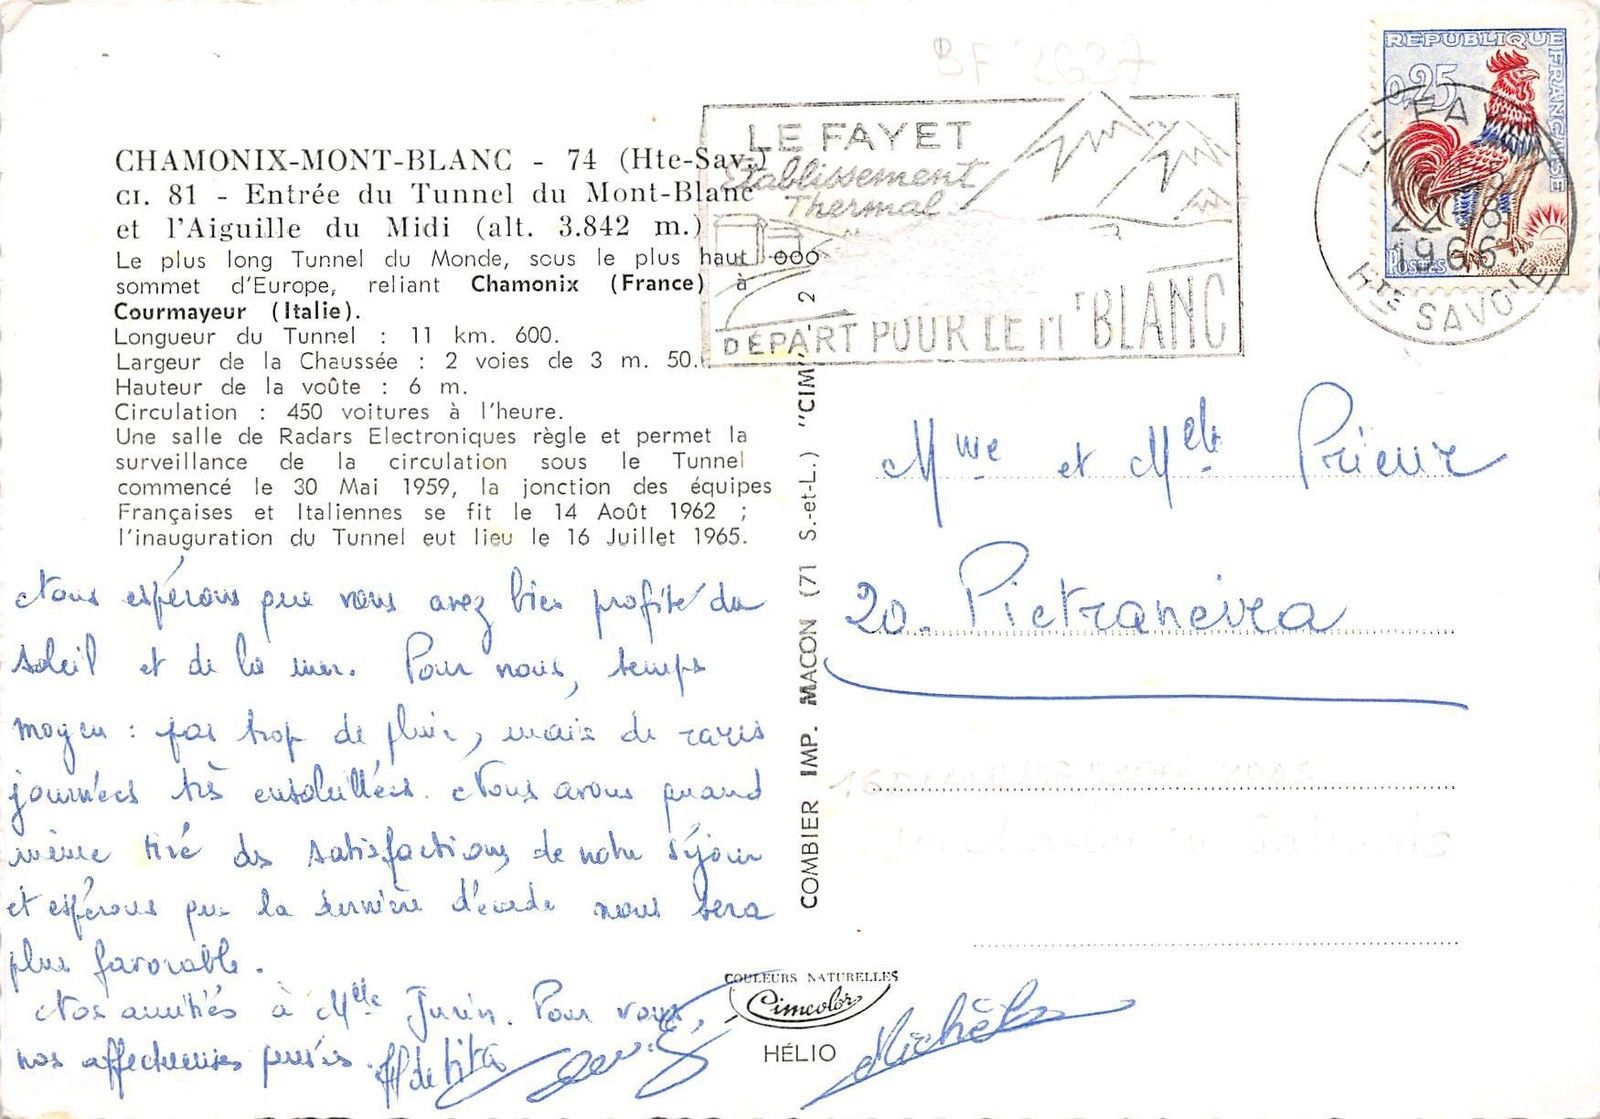 BF 2637
CHAMONIX-MONT-BLANC - 74 (Hte-Sav.)
CI. 81 - Entrée du Tunnel du Mont-Blanc
et l'Aiguille du Midi (alt. 3.842 m.)
Le plus long Tunnel du Monde, sous le plus haut
sommet d'Europe, reliant Chamonix (France) à
Courmayeur (Italie).
Longueur du Tunnel : 11 km. 600.
Largeur de la Chaussée : 2 voies de 3 m. 50.
Hauteur de la voûte : 6 m.
Circulation : 450 voitures à l'heure.
Une salle de Radars Electroniques règle et permet la
surveillance de la circulation sous le Tunnel
commencé le 30 Mai 1959, la jonction des équipes
Françaises et Italiennes se fit le 14 Août 1962 ;
l'inauguration du Tunnel eut lieu le 16 Juillet 1965.
Nous espérons que vous avez bien profité du
soleil et de la mer. Pour nous, temps
moyen : pas trop de pluie, mais de rares
journées très ensoleillées. Nous avons quand
même tiré des satisfactions de notre séjour
et espérons que la dernière décade nous sera
plus favorable.
Nos amitiés à Mlle Jurin. Pour vous,
nos affectueuses pensées.
Michèle
LE FAYET
Etablissement
Thermal
DÉPART POUR LE Mt BLANC
REPUBLIQUE FRANÇAISE
0,25
POSTES
LE FAYET
22-8
1966
HTE SAVOIE
Mme et Melle Prieur
20. Pietranera
COMBIER IMP. MACON (71 S.-et-L.) "CIM"
COULEURS NATURELLES
Cimcolor
HÉLIO